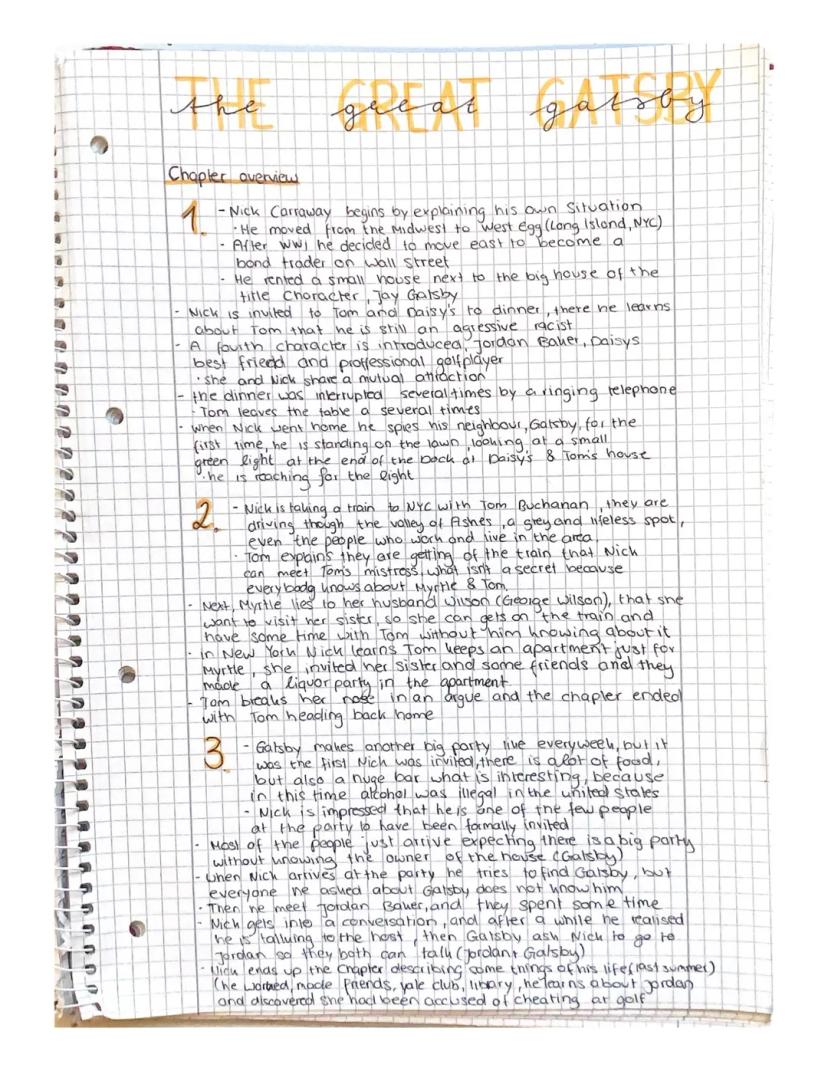 THE GREAT GATSBY
the great gatsby
Chapter overview
1. - Nick Carraway begins by explaining his own Situation
· He moved from the Midwest to West Egg (Long Island, NYC)
- After WW1 he decided to move east to become a
bond trader on Wall Street
- He rented a small house next to the big house of the
title Character, Jay Gatsby
- Nick is invited to Tom and Daisy's to dinner, there he learns
about Tom that he is still an agressive racist
- A fourth character is introduced, Jordan Baker, Daisys
best friend and proffessional golfplayer
· she and Nick share a mutual attraction
- the dinner was interrupted several times by a ringing telephone
- Tom leaves the table a several times
- when Nick went home he spies his neighbour, Gatsby, for the
first time, he is standing on the lawn, looking at a small
green light at the end of the Dock at Daisy's & Tom's house
· he is reaching for the light
2. - Nick is taking a train to NYC with Tom Buchanan, they are
driving though the valley of Ashes, a grey and lifeless spot,
even the people who work and live in the area.
· Tom explains they are getting of the train that Nick
can meet Tom's mistress, what isn't a secret because
everybody knows about Myrtle & Tom.
- Next, Myrtle lies to her husband Wilson (George Wilson), that she
want to visit her sister, so she can gets on the train and
have some time with Tom without him knowing about it
- in New York Nick learns Tom keeps an apartment just for
Myrtle, she invited her sister and some friends and they
made a liquor party in the apartment.
- Tom breaks her nose in an argue and the chapter ended
with Tom heading back home
3. - Gatsby makes another big party like everyweek, but it
was the first Nick was invited, there is a lot of food,
but also a huge bar what is interesting, because
in this time alcohol was illegal in the united states
- Nick is impressed that he is one of the few people
at the party to have been formally invited
- Most of the people just arrive expecting there is a big party
without knowing the owner of the house (Gatsby)
- when Nick arrives at the party he tries to find Gatsby, but
everyone he asked about Gatsby does not know him
- Then he meet Jordan Baker, and they spent some time
- Nick gets into a conversation, and after a while he realised
he is talking to the host, then Gatsby ask Nick to go to
Jordan so they both can talk (Jordan + Gatsby)
- Nick ends up the Chapter describing some things of his life (last summer)
(he worked, made friends, yale club, library, he learns about Jordan
and discovered she had been accused of cheating at golf